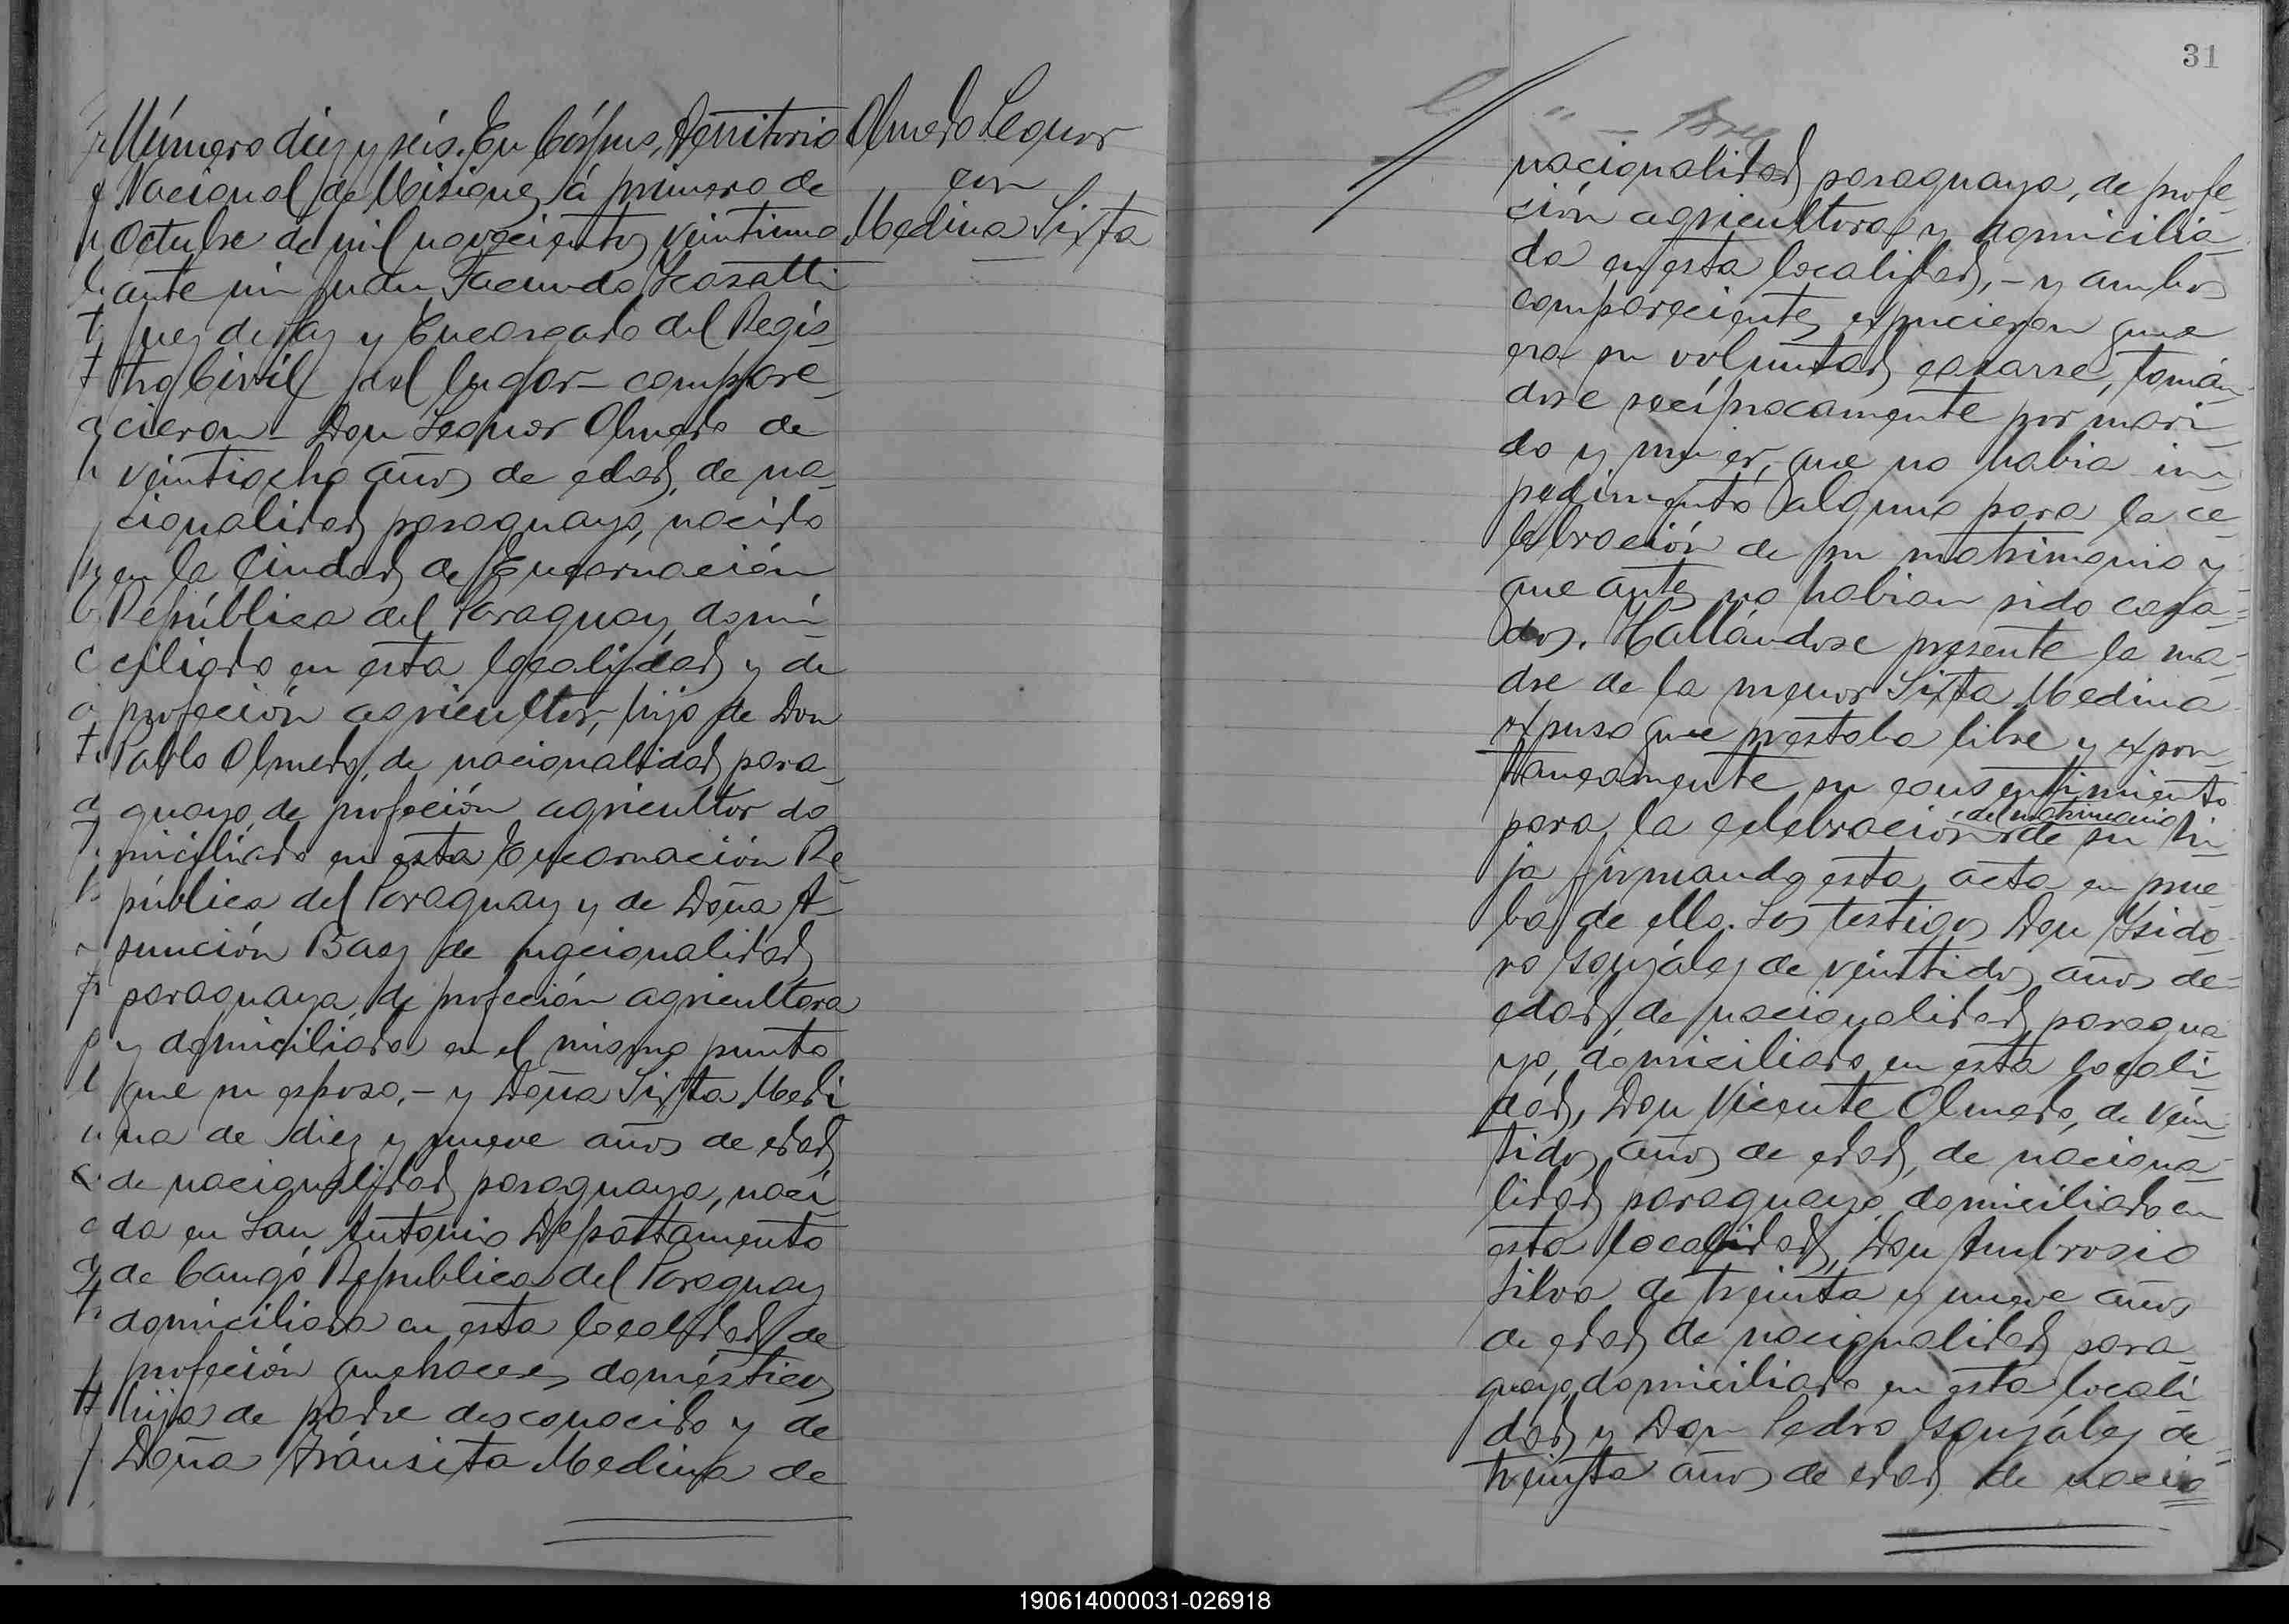 Número diez y séis. En Córpus, Território
Nacional de Misiones, á primero de
Octubre de mil novecientos veintiuno
ante mi Juan Facundo
Juez de Paz y Encargado del Regis-
tro Civil del lugar – compare-
cieron – Don Leonor Olmedo de
veintiocho años de edad, de na-
cionalidad paraguaya, nacido
en la Ciudad de Encarnación
República del Paraguay, domi-
ciliado en esta localidad y de
profeción agricultor, hijo de Don
Pablo Olmedo, de nacionalidad para-
guaya, de profeción agricultor do-
miciliado en esta Encarnación Re-
pública del Paraguay y de Doña A-
sunción Baez de nacionalidad
paraguaya, de profeción agricultora
y domiciliada en el mismo punto
que su esposo. – y Doña Sixta Medi-
na de diez y nueve años de edad,
de nacionalidad paraguaya, naci-
da en San Antonio Departamento
de Cangó República del Paraguay
domiciliada en esta localidad, de
profeción quehaceres domésticos
hija de padre desconocido y de
Doña Tránsita Medina de
Olmedo Leonor
con
Medina Sixta
31
nacionalidad paraguaya, de profe-
ción agricultora y domicilia-
da en esta localidad, – y ambos
comparecientes expucieron que
era su voluntad casarse, tomán-
dose recíprocamente por mari-
do y mujer, que no habia im-
pedimento alguno para la ce-
lebración de su matrimonio y
que antes no habian sido casa-
dos. Hallándose presente la ma-
dre de la menor Sixta Medina
expuso que prestaba libre y expon-
taneamente su consentimiento
para la celebración del matrimonio de su hi-
ja firmando esta acta en prue-
ba de ello. Los testigos Don Ysido-
ro González de veintidos años de
edad, de nacionalidad paragua-
ya, domiciliado en esta locali-
dad, Don Vicente Olmedo, de vein-
tidos años de edad, de naciona-
lidad paraguaya domiciliado en
esta localidad, Don Ambrosio
Silva de treinta y nueve años
de edad de nacionalidad para-
guaya, domiciliado en esta locali-
dad y Don Pedro González de
treinta años de edad de nacio
190614000031-026918